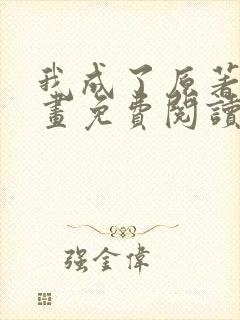 我成了原著
畫免費閱讀
强金偉